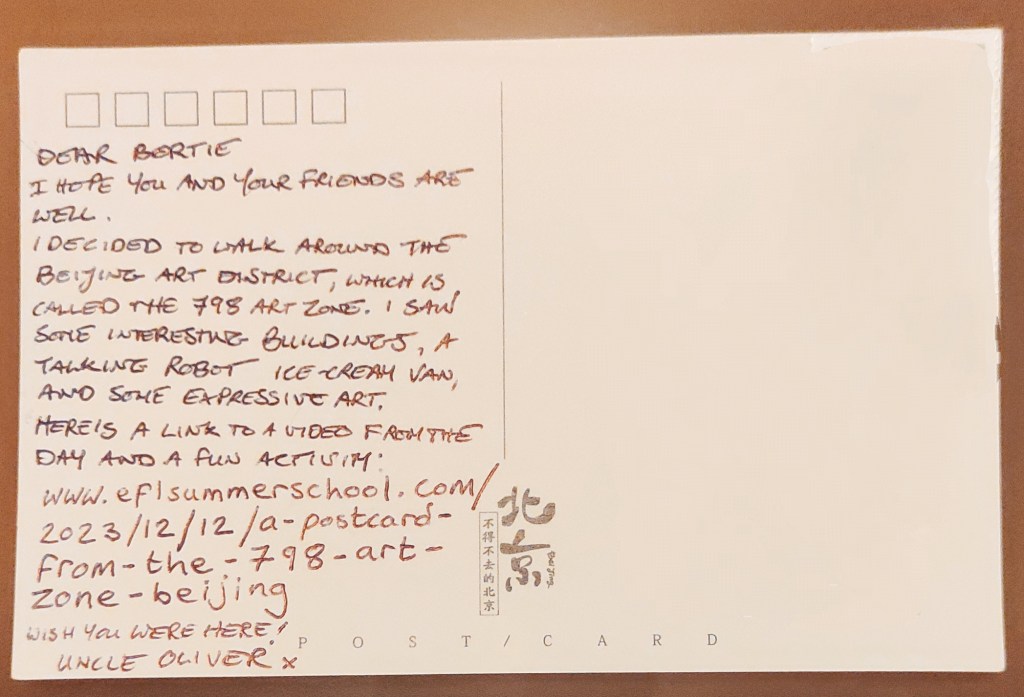 DEAR BERTIE
I HOPE YOU AND YOUR FRIENDS ARE
WELL.
I DECIDED TO WALK AROUND THE
BEIJING ART DISTRICT, WHICH IS
CALLED THE 798 ART ZONE. I SAW
SOME INTERESTING BUILDINGS, A
TALKING ROBOT ICE-CREAM VAN,
AND SOME EXPRESSIVE ART.
HERE IS A LINK TO A VIDEO FROM THE
DAY AND A FUN ACTIVITY:
www.eflsummerschool.com/
2023/12/12/a-postcard-
from-the-798-art-
zone-beijing
WISH YOU WERE HERE!
UNCLE OLIVER x
北京
Beijing
不得不去的北京
POST/CARD